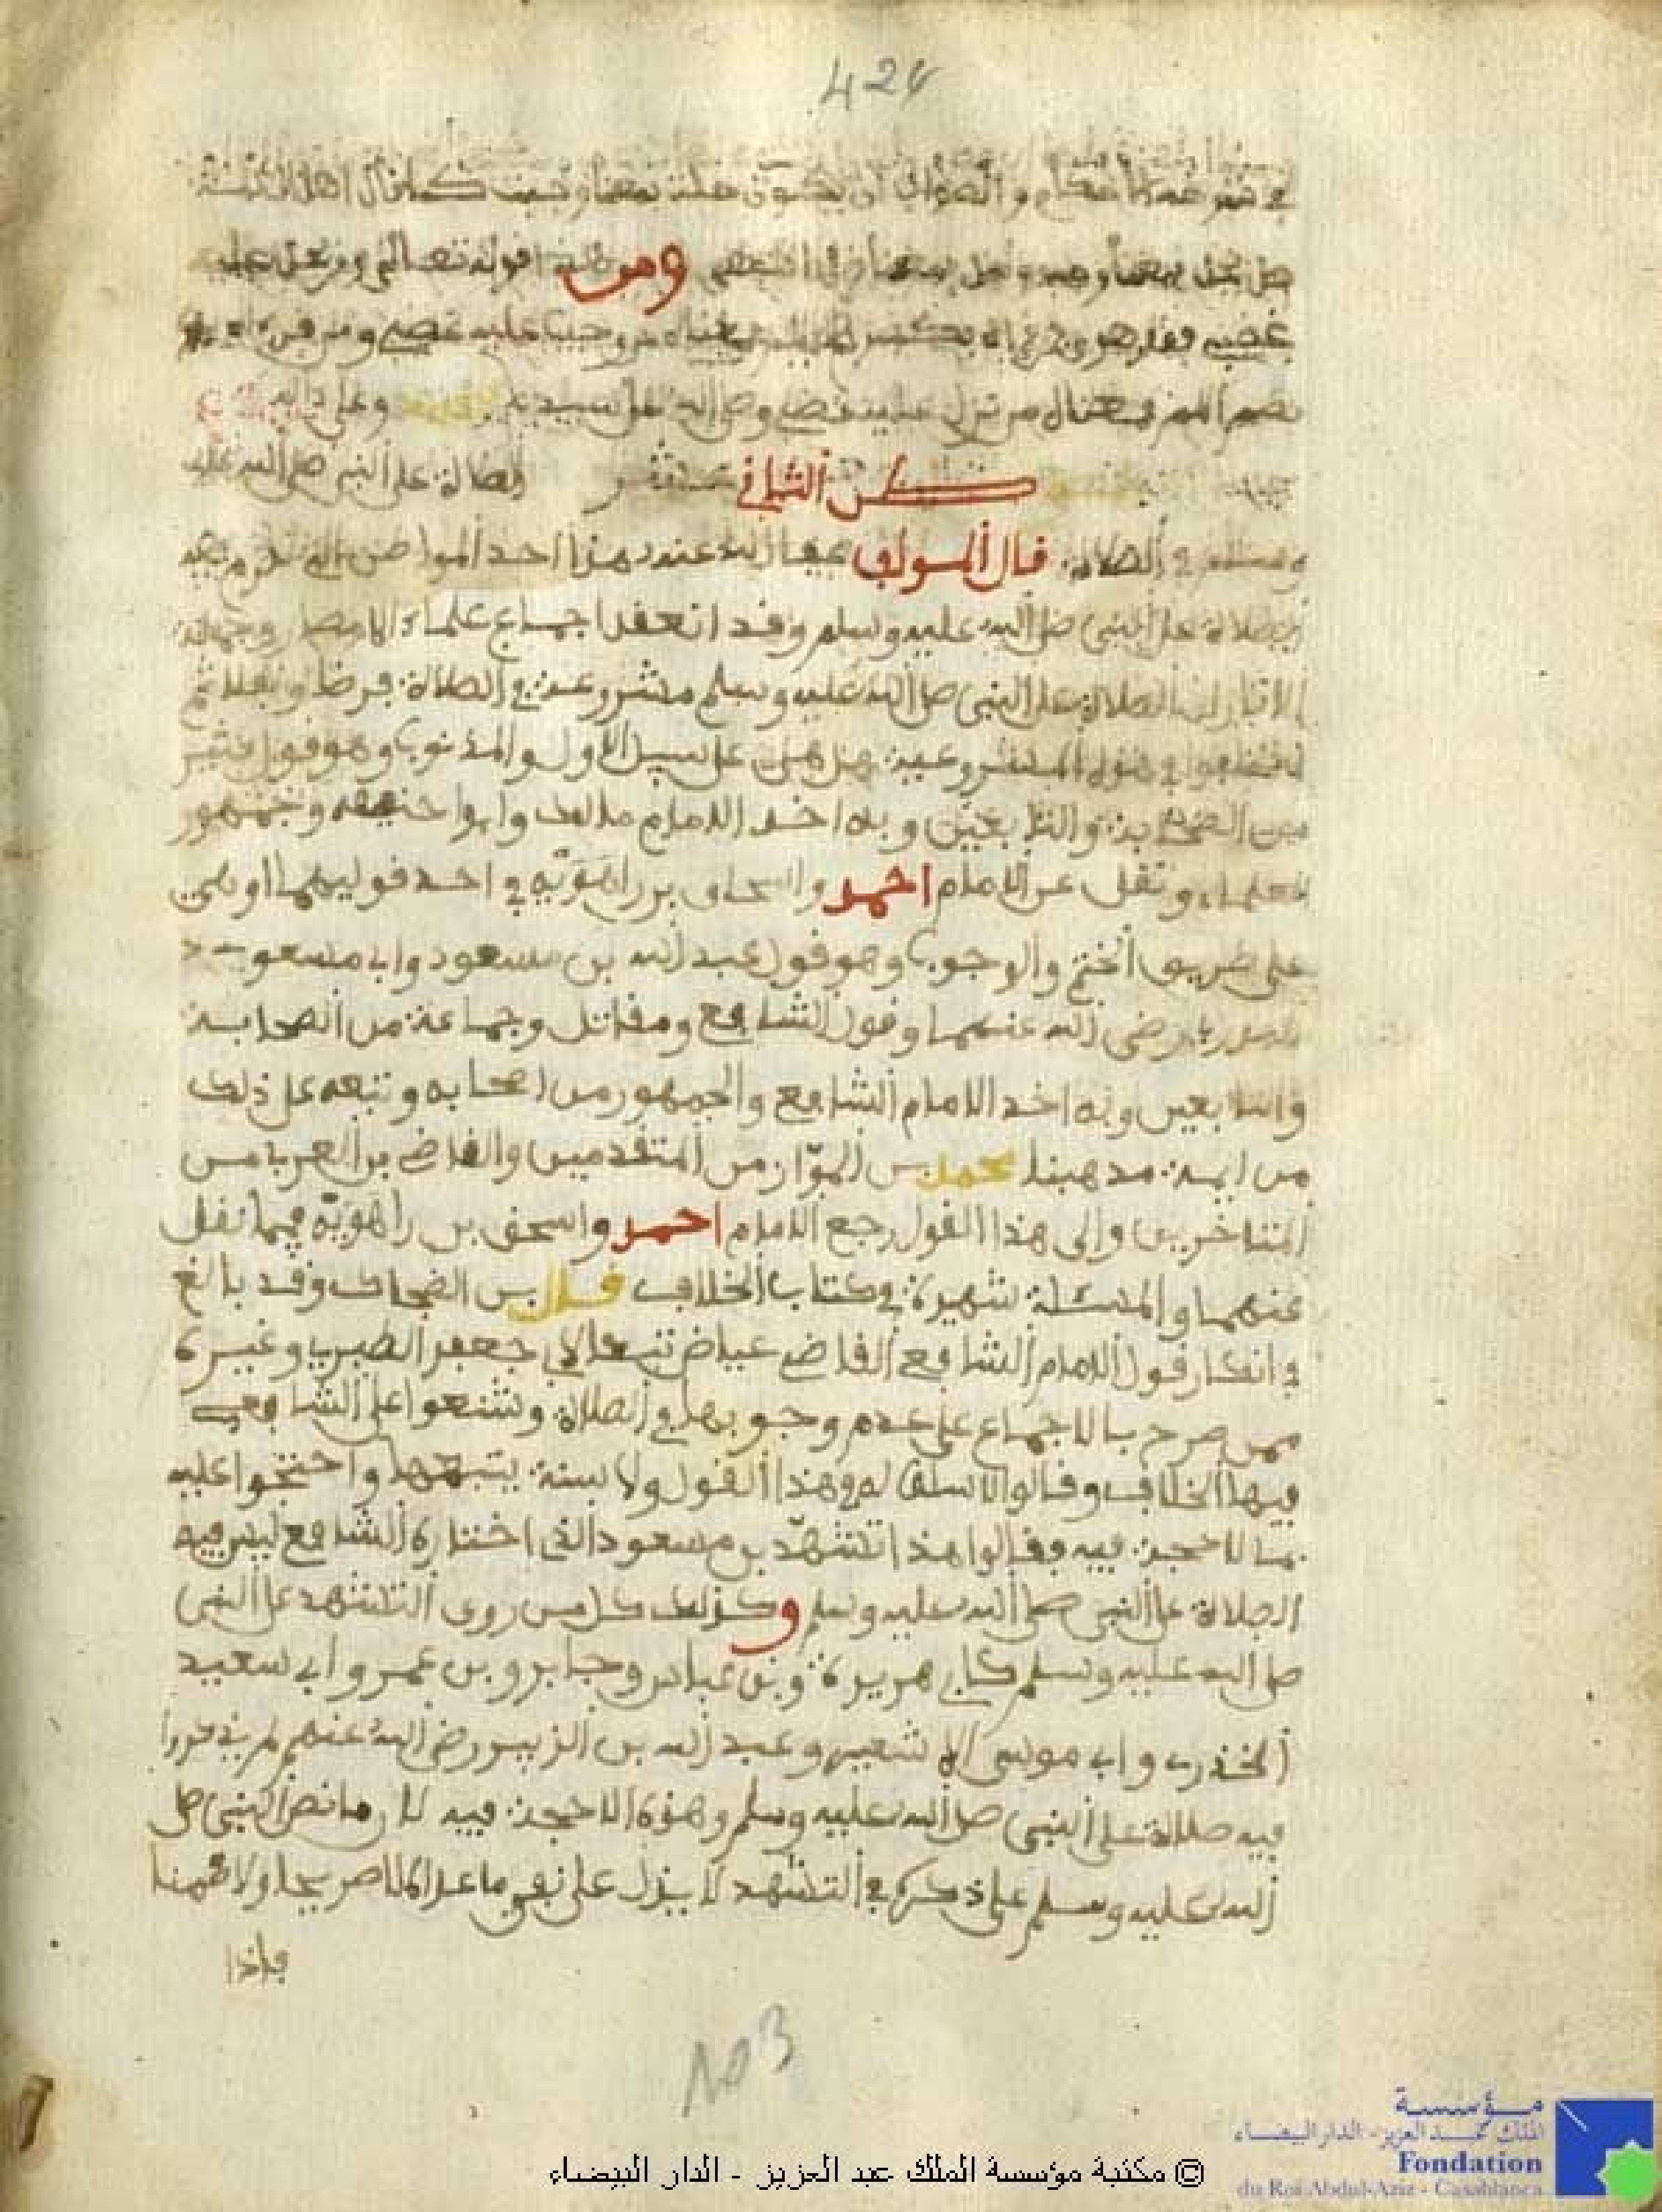 424
في والصواب ان يكون حلت بمعنا وجبت كما قال اهل
حل يحل بمعنا وجب وحل ومن قوله تعالى ومن يحلل عليه
غضبي فقد هوى وجب عليه غضبي ومن
بضم بمعنا من نزل عليه غضبي وصلى الله على سيدنا وعلى ءاله
طن الثاني عشر الصلاة على النبي صلى الله عليه
وسلم في الصلاة قال المولف عفا الله عنه هذا احد المواطن التي
الصلاة على النبي صلى الله عليه وسلم وقد انعقد اجماع علماء الامصار
الصلاة على النبي صلى الله عليه وسلم مشروعة في الصلاة فرضا ونفلا ثم
اختلفوا في هذه المشروعية هل هي على سبيل الاول والمندوب وهو قول كثير
من الصحابة والتابعين وبه اخذ الامام مالك وابوا حنيفه وجمهور
العلماء ونقل عن الامام احمد واسحاق بن راهويه في احد قوليهما او هي
على طريق الختم والوجوب وهو قول عبد الله بن مسعود وابي مسعود
رضي الله عنهما وقول الشافعي ومقاتل وجماعة من الصحابة
والتابعين وبه اخذ الامام الشافعي والجمهور من اصحابه وتبعه على ذلك
من ايمة مذهبنا محمد بن المواز من المتقدمين والقاضي بن العربي من
المتاخرين والى هذا القول رجع الامام احمد واسحق بن راهويه فيما نقل
عنهما والمسئلة شهيرة في كتاب الخلاف قال بن الضحاك وقد بالغ
في انكار قول الامام الشافعي القاضي عياض تبعا لابي جعفر الطبري وغيره
ممن صرح بالاجماع على عدم وجوبها في الصلاة وشنعوا على الشافعي
فيها الخلاف وقالوا لا سلف له في هذا القول ولا سنة يتبعها واحتجوا عليه
بما لا حجة فيه وقالوا هذا تشهد بن مسعود الذي اختاره الشافعي ليس فيه
الصلاة على النبي صلى الله عليه وسلم وكذلك كل من روى التشهد عن النبي
صلى الله عليه وسلم كابي هريرة وبن عباس وجابر وبن عمر وابي سعيد
الخذري وابي موسى الاشعري وعبد الله بن الزبير رضي الله عنهم لم يذكروا
فيه صلاة على النبي صلى الله عليه وسلم وهذه لا حجة فيه لان ما نص النبي صلى
الله عليه وسلم على ذكره في التشهد لا ينزل على نفي ما عداه لا صريحا ولا ضمنا
فاذا
103
مؤسسة
الملك عبد العزيز - الدار البيضاء
Fondation
du Roi Abdul-Aziz - Casablanca
© مكتبة مؤسسة الملك عبد العزيز - الدار البيضاء